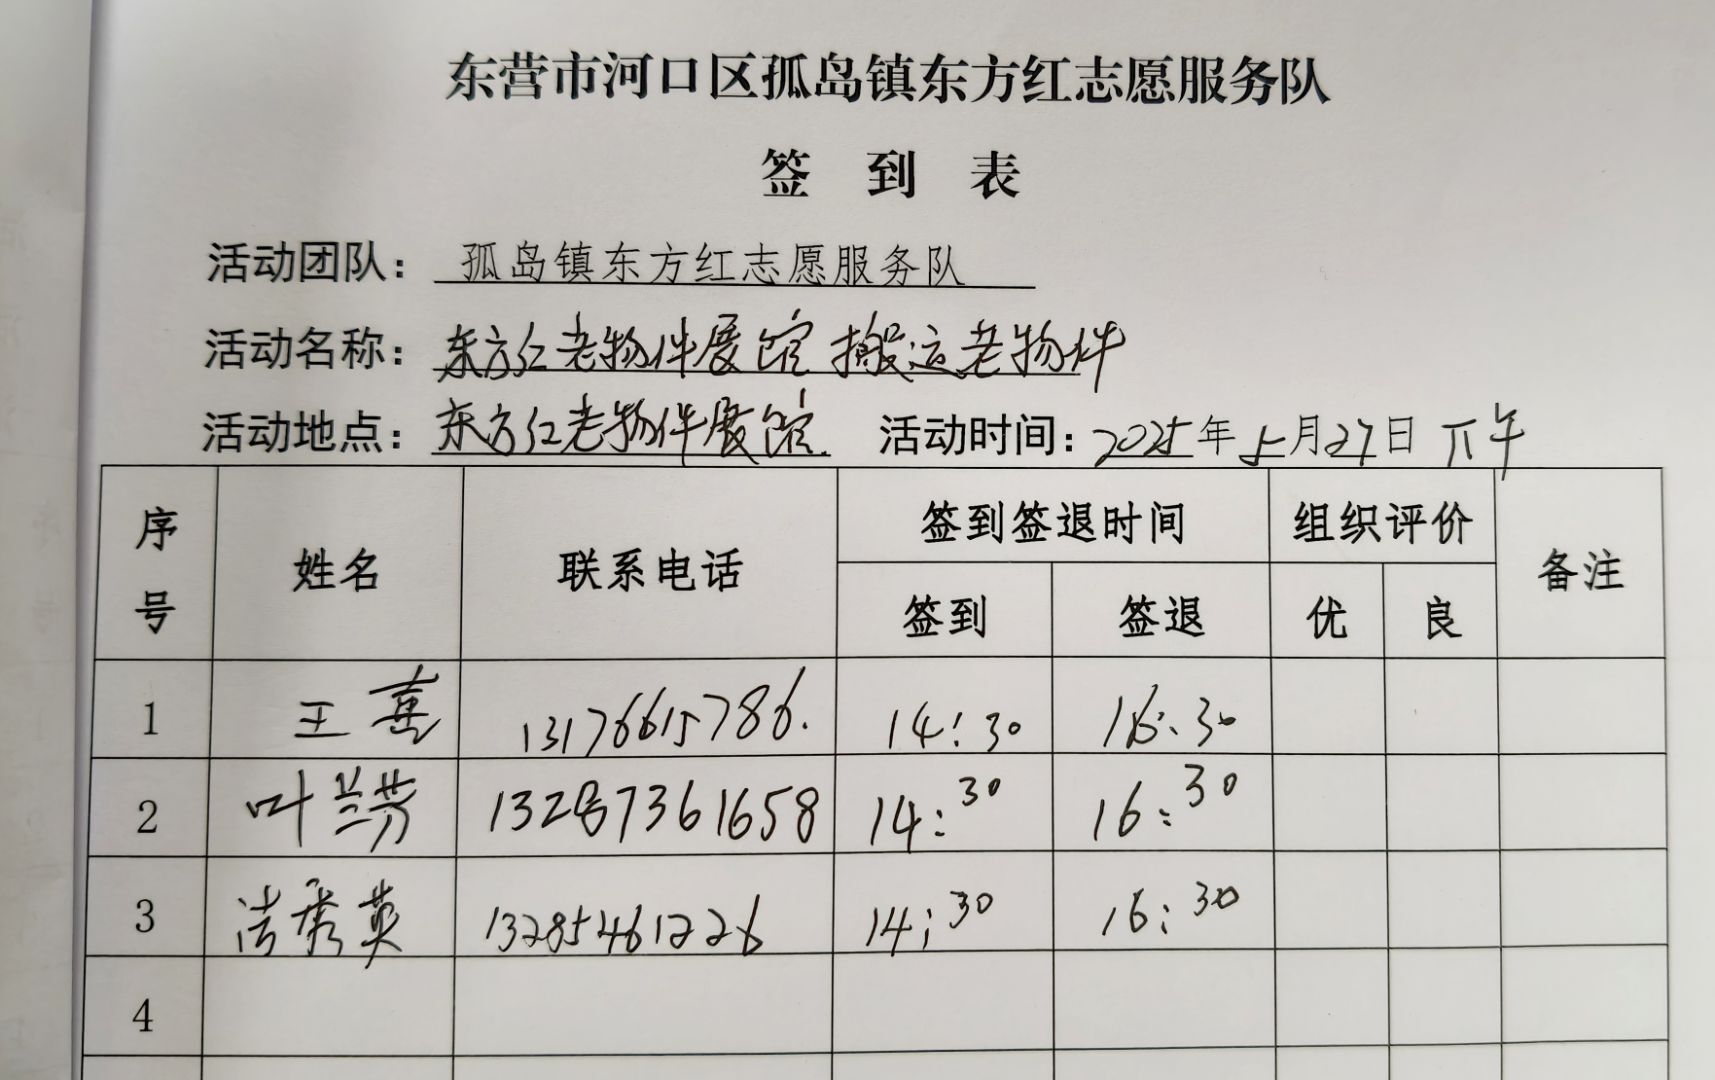 东营市河口区孤岛镇东方红志愿服务队
签 到 表
活动团队：孤岛镇东方红志愿服务队
活动名称：东方红老物件展馆搬运老物件
活动地点：东方红老物件展馆 活动时间：2025年5月27日下午
序号 姓名 联系电话 签到签退时间 组织评价 备注
签到 签退 优 良
1 王 13176615786. 14:30 16:30
2 叶兰芳 14:30 16:30
3 秀英 13285461226 14:30 16:30
4